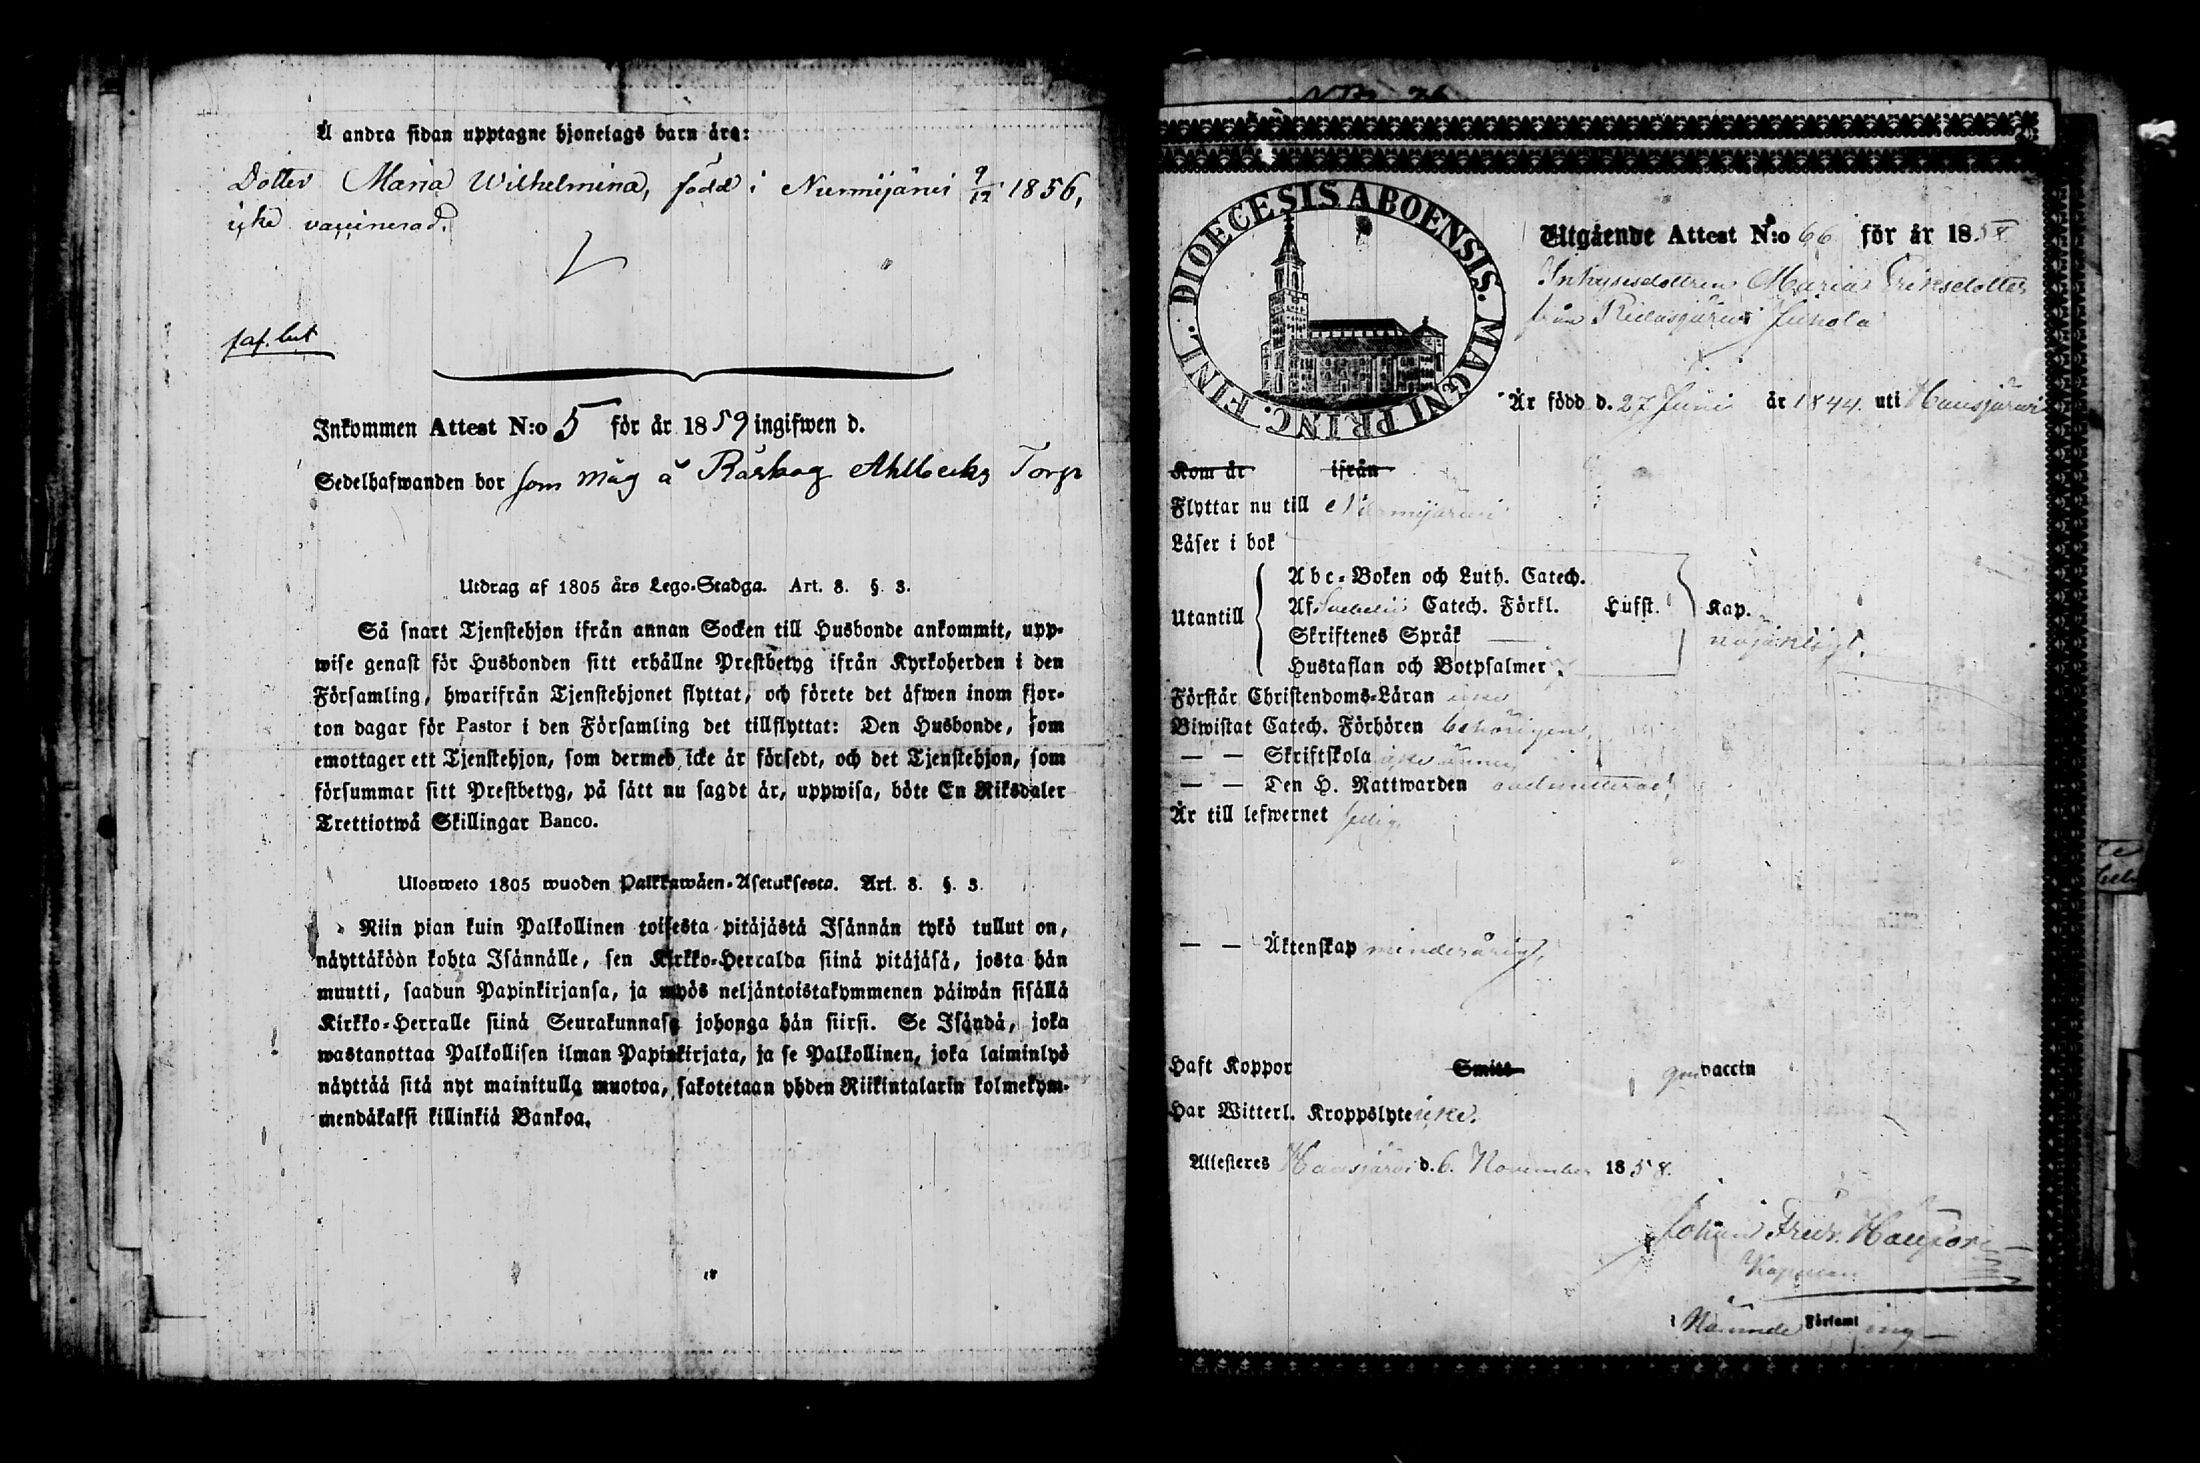 Å andra sidan upptagne hjonelags barn äro:
Dotter Maria Wilhelmina, född i Nurmijärvi 9/12 1856,
icke vaccinerad.
Inkommen Attest N:o 5 för år 1859 ingifwen d.
Sedelhafwanden bor som måg å Råskog Ahlbecks Torp
Utdrag af 1805 års Lego-Stadga. Art. 8. §. 3.
Så snart Tjenstehjon ifrån annan Socken till Husbonde ankommit, upp-
wise genast för Husbonden sitt erhållne Prestbetyg ifrån Kyrkoherden i den
Församling, hwarifrån Tjenstehjonet flyttat, och förete det äfwen inom fjor-
ton dagar för Pastor i den Församling det tillflyttat: Den Husbonde, som
emottager ett Tjenstehjon, som dermed icke är försedt, och det Tjenstehjon, som
försummar sitt Prestbetyg, på sätt nu sagdt är, uppwisa, böte En Riksdaler
Trettiotwå Skillingar Banco.
Ulosweto 1805 wuoden Palkkawäen-Asetuksesta. Art. 8. §. 3.
Niin pian kuin Palkollinen toisesta pitäjästä Isännän tykö tullut on,
näyttäköön kohta Isännälle, sen Kirkko-Herralda siinä pitäjäsä, josta hän
muutti, saadun Papinkirjansa, ja myös neljäntoistakymmenen päiwän sisällä
Kirkko-Herralle siinä Seurakunnasa johonga hän siirsi. Se Isändä, joka
wastanottaa Palkollisen ilman Papinkirjata, ja se Palkollinen, joka laiminlyö
näyttää sitä nyt mainitulla muotoa, sakotetaan yhden Riikintalarin kolmekym-
mendäkaksi killinkiä Bankoa.
DIOECESIS ABOENSIS. MAGNI PRINC. FINL.
Utgående Attest N:o 66 för år 1858
Inhysesdottren Maria Eriksdotter
från Ridasjärvi
Är född d. 27 Juni år 1844 uti Hausjärvi
Kom år ifrån
Flyttar nu till Nurmijärvi
Läser i bok
Utantill
Abc-Boken och Luth. Catech.
Af Svebelii Catech. Förkl. Hufst. Kap.
Skriftenes Språk
nöjaktigt.
Hustaflan och Botpsalmer
Förstår Christendoms-Läran
Biwistat Catech. Förhören behörigen
— — Skriftskola icke ännu
— — Den H. Nattwarden oadmitterad
Är till lefwernet sedig
— — Äktenskap minderårig
Haft Koppor Smitt vaccin
Har Witterl. Kroppslyte icke.
Attesteres Hausjärvi d. 6. November 1858.
Johan Fredr.
Kapellan
i Församling